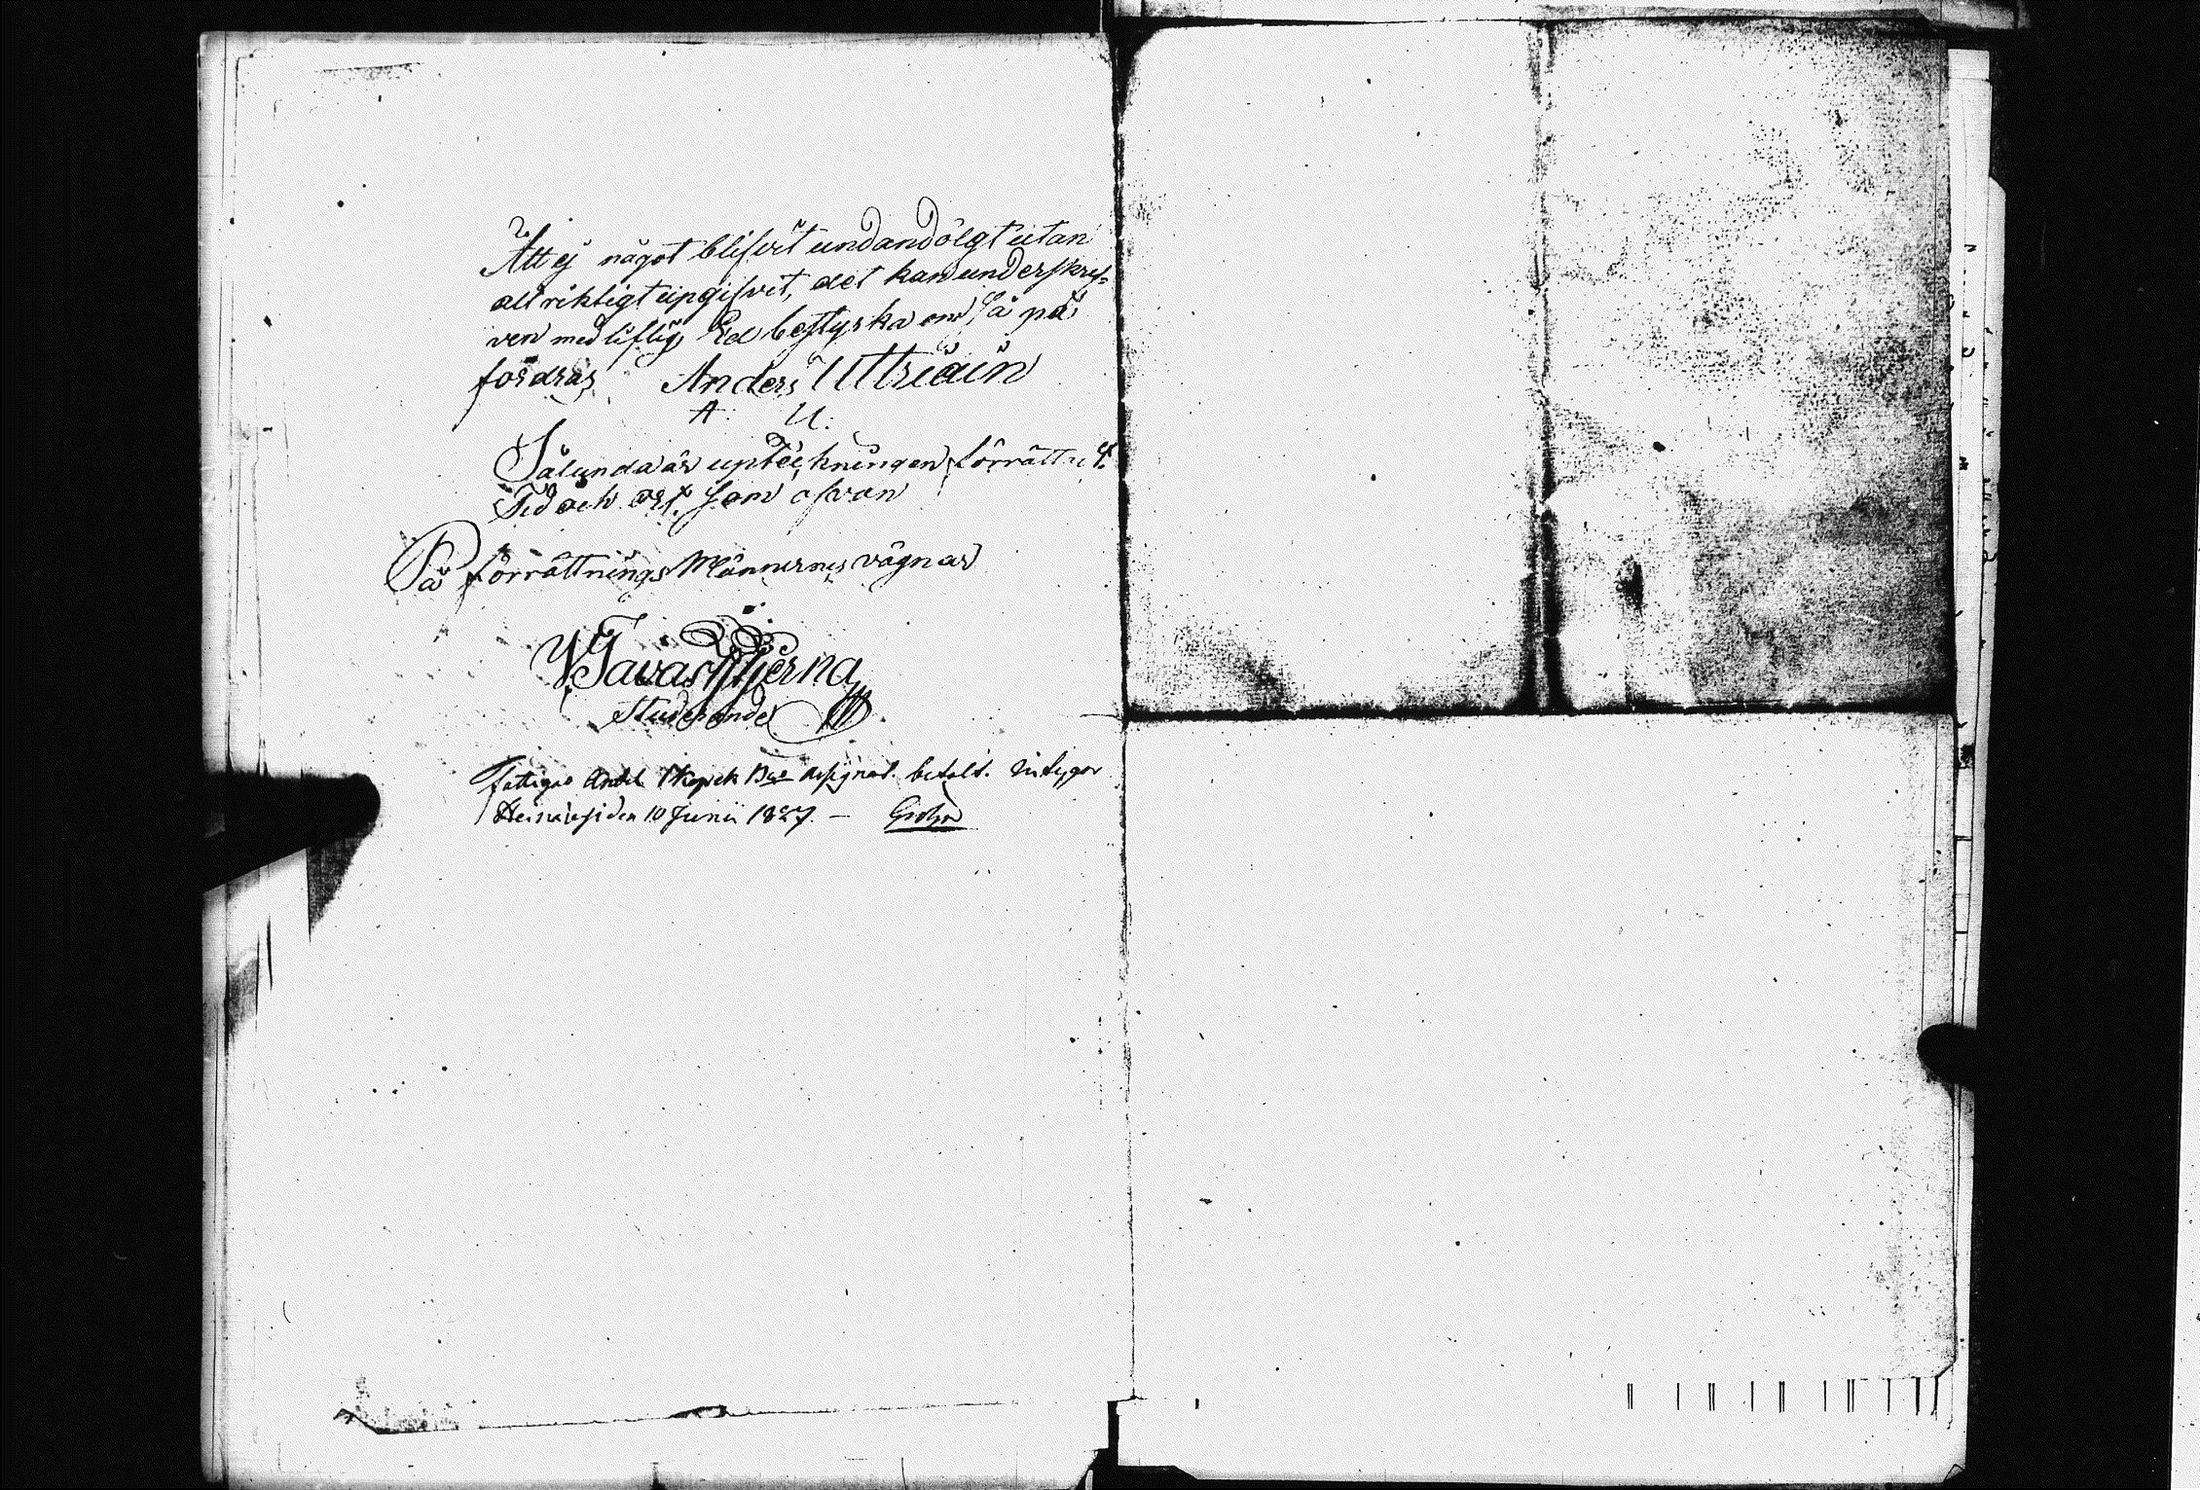 Att ej något blifvit undandölgt utan
alt riktigt upgifvit, det kan underskref=
ven med liflig Ed bestyrka om så på
fordras Anders Uttriäin
A: U:
Sålunda är upteckningen förrättad.
Tid och ort som ofvan
På förrättnings Männernes vägnar
W Tavaststjerna
Studerande
Fattigas Andel 1 Kopek Bco Assignat. betalt. intygar
Heinävesi den 10 Junii 1827. —